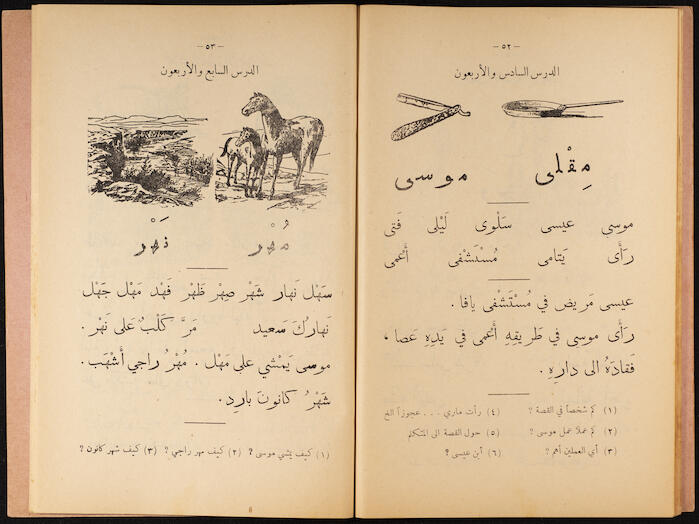 — ٥٢ —
الدرس السادس والأربعون
مِقْلى موسى
موسى عيسى سَلْوى لَيْلى فَتى
رَأى يَتامى مُسْتَشْفى أَعْمى
عيسى مَريض في مُسْتَشْفى يافا .
رَأى موسى في طَريقِهِ أَعْمى في يَدِهِ عَصا ،
فَقادَهُ الى دارِهِ .
(١) كم شخصاً في القصة ؟ (٤) رأت ماري . . . عجوزاً الخ
(٢) كم عملاً عمل موسى ؟ (٥) حول القصة الى المتكلم
(٣) أي العملين أهم ؟ (٦) أين عيسى ؟
— ٥٣ —
الدرس السابع والأربعون
مُهْر نَهْر
سَهْل نَهار شَهْر صِهْر ظَهْر فَهْد مَهْل جَهْل
نَهارُكَ سَعيد مَرَّ كَلْبٌ عَلى نَهْر .
موسى يَمْشي على مَهْل . مُهْرُ راجي أَشْهَب .
شَهْرُ كانونَ بارِد .
(١) كيف يمشي موسى ؟ (٢) كيف مهر راجي ؟ (٣) كيف شهر كانون ؟
8